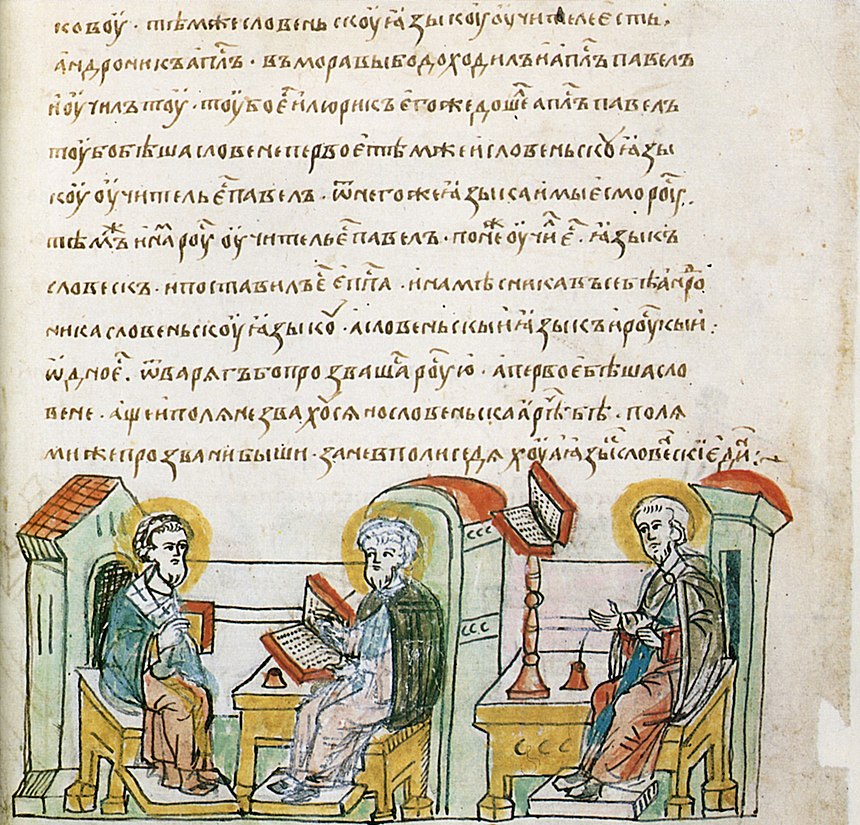 ковоу · тѣмже словеньскоу ꙗзыкоу оучителе есть
андроникъ ап҃лъ · въ моравы бо доходилъ и ап҃лъ павелъ
и оучилъ тоу · тоу бо є҆ илюрикъ егоже доше҆ ап҃лъ павелъ
тоу бо бѣша словене первое тѣмже и словеньскоу ꙗзы
коу оучитель є҆ павелъ · ѿ негоже ꙗзыка и мы есмо роу҆
тѣм҆ъ и на҆ роу҆ оучитель є҆ павелъ · понеж҆ оучи҆ є҆ · ꙗзыкъ
словескъ · и поставилъ є҆ еп҃па · и намѣсника въ себѣ анд҆ро
ника словеньскоу ꙗзыкоу · а словеньскыи ꙗзыкъ и роу҆кыи :
ѡдно е҆ · ѿ варягъ бо прозваша҆ роу҆ю · а первое бѣша сло
вене · аще и поляне звахо҆ся но словеньскаа рѣ҆ бѣ · поля
ми же прозвани быши · зане в поли седяхоу а ꙗзы҆ слове҆скіи еди҆ :~